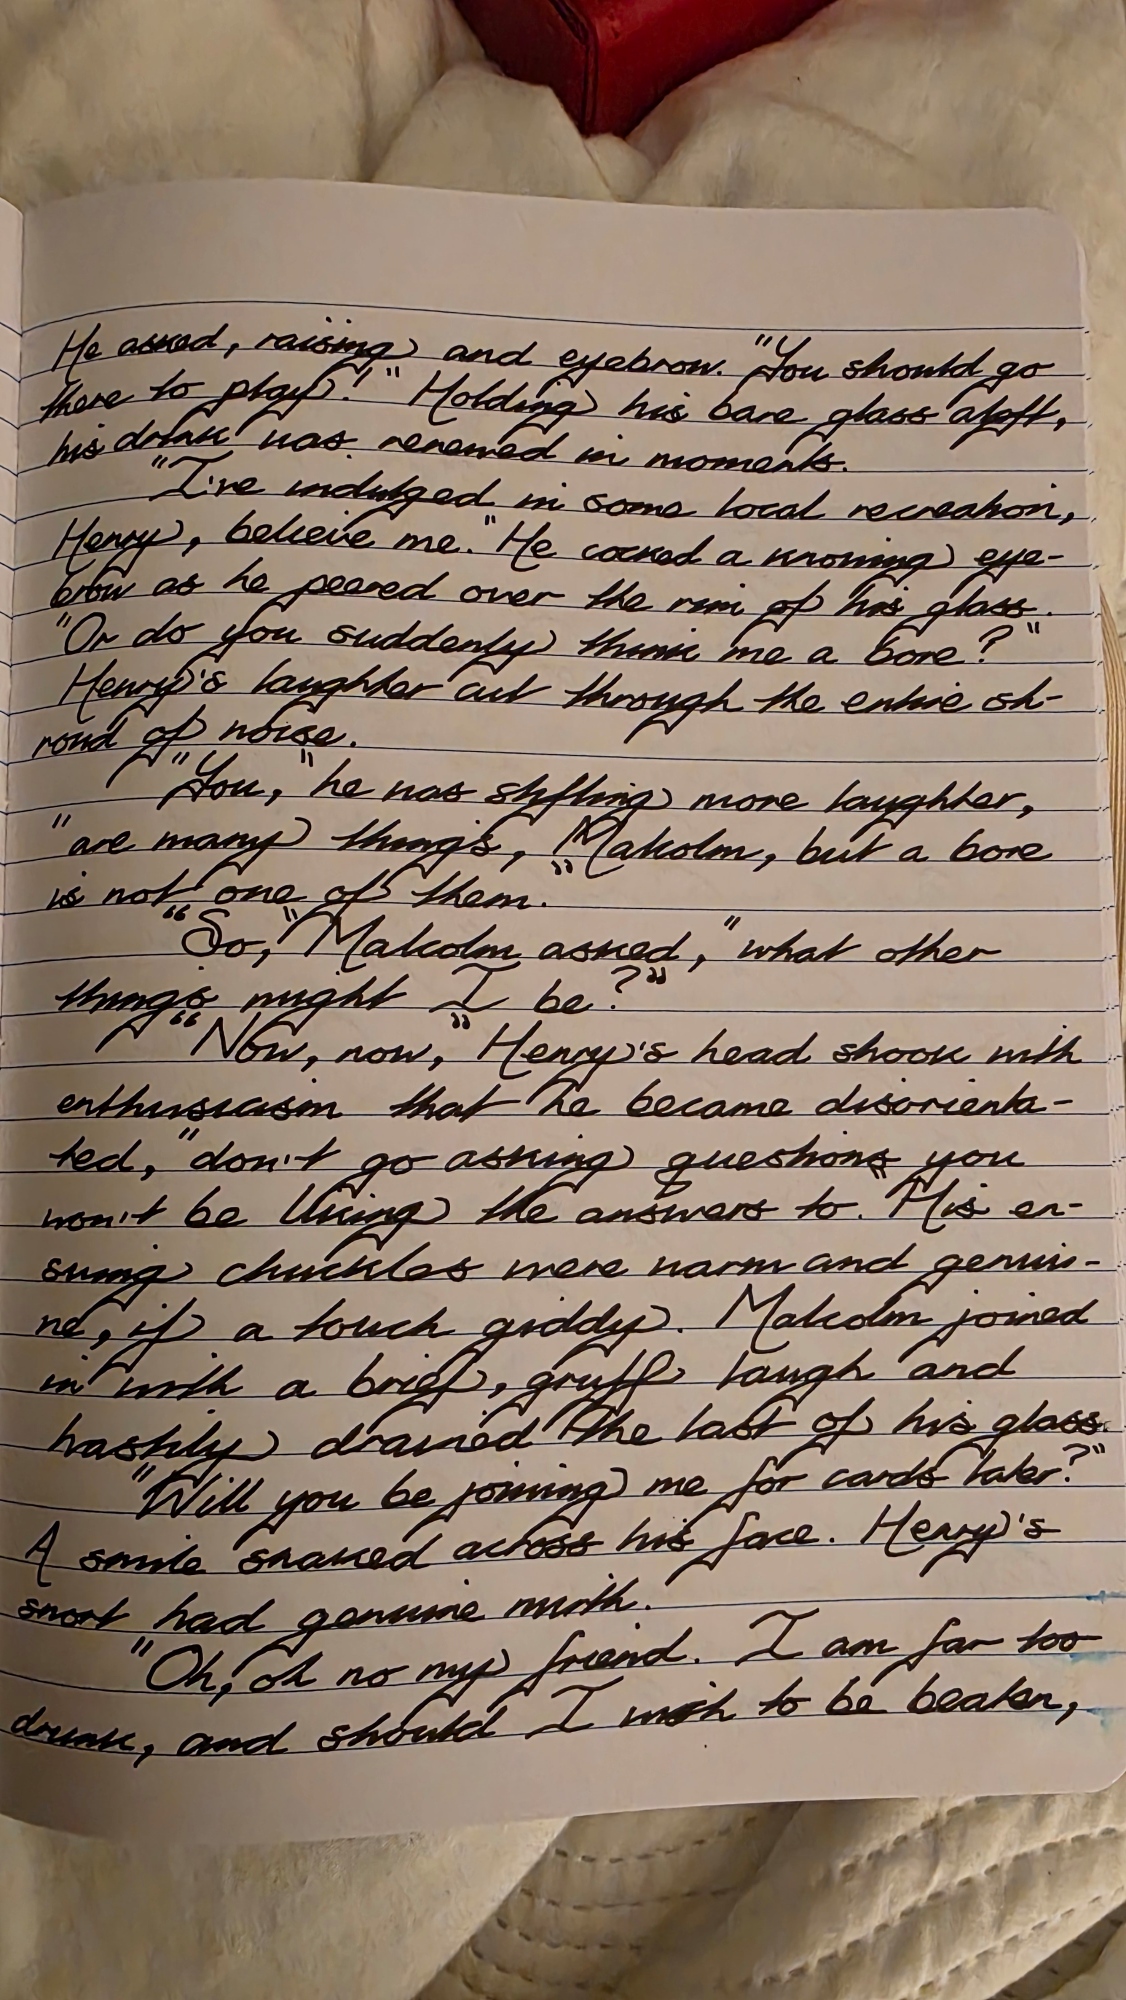 He asked, raising and eyebrow. "You should go
there to play!" Holding his bare glass aloft,
his drink was renewed in moments.
"I've indulged in some local recreation,
Henry, believe me." He cocked a knowing eye-
brow as he peered over the rim of his glass.
"Or do you suddenly think me a bore?"
Henry's laughter cut through the entire sh-
roud of noise.
"You," he was stifling more laughter,
"are many things, Malcolm, but a bore
is not one of them."
"So," Malcolm asked, "what other
things might I be?"
"Now, now," Henry's head shook with
enthusiasm that he became disorienta-
ted, "don't go asking questions you
won't be liking the answers to." His en-
suing chuckles were warm and genui-
ne, if a touch giddy. Malcolm joined
in with a brief, gruff laugh and
hastily drained the last of his glass.
"Will you be joining me for cards later?"
A smile snaked across his face. Henry's
snort had genuine mirth.
"Oh, oh no my friend. I am far too
drunk, and should I wish to be beaten,